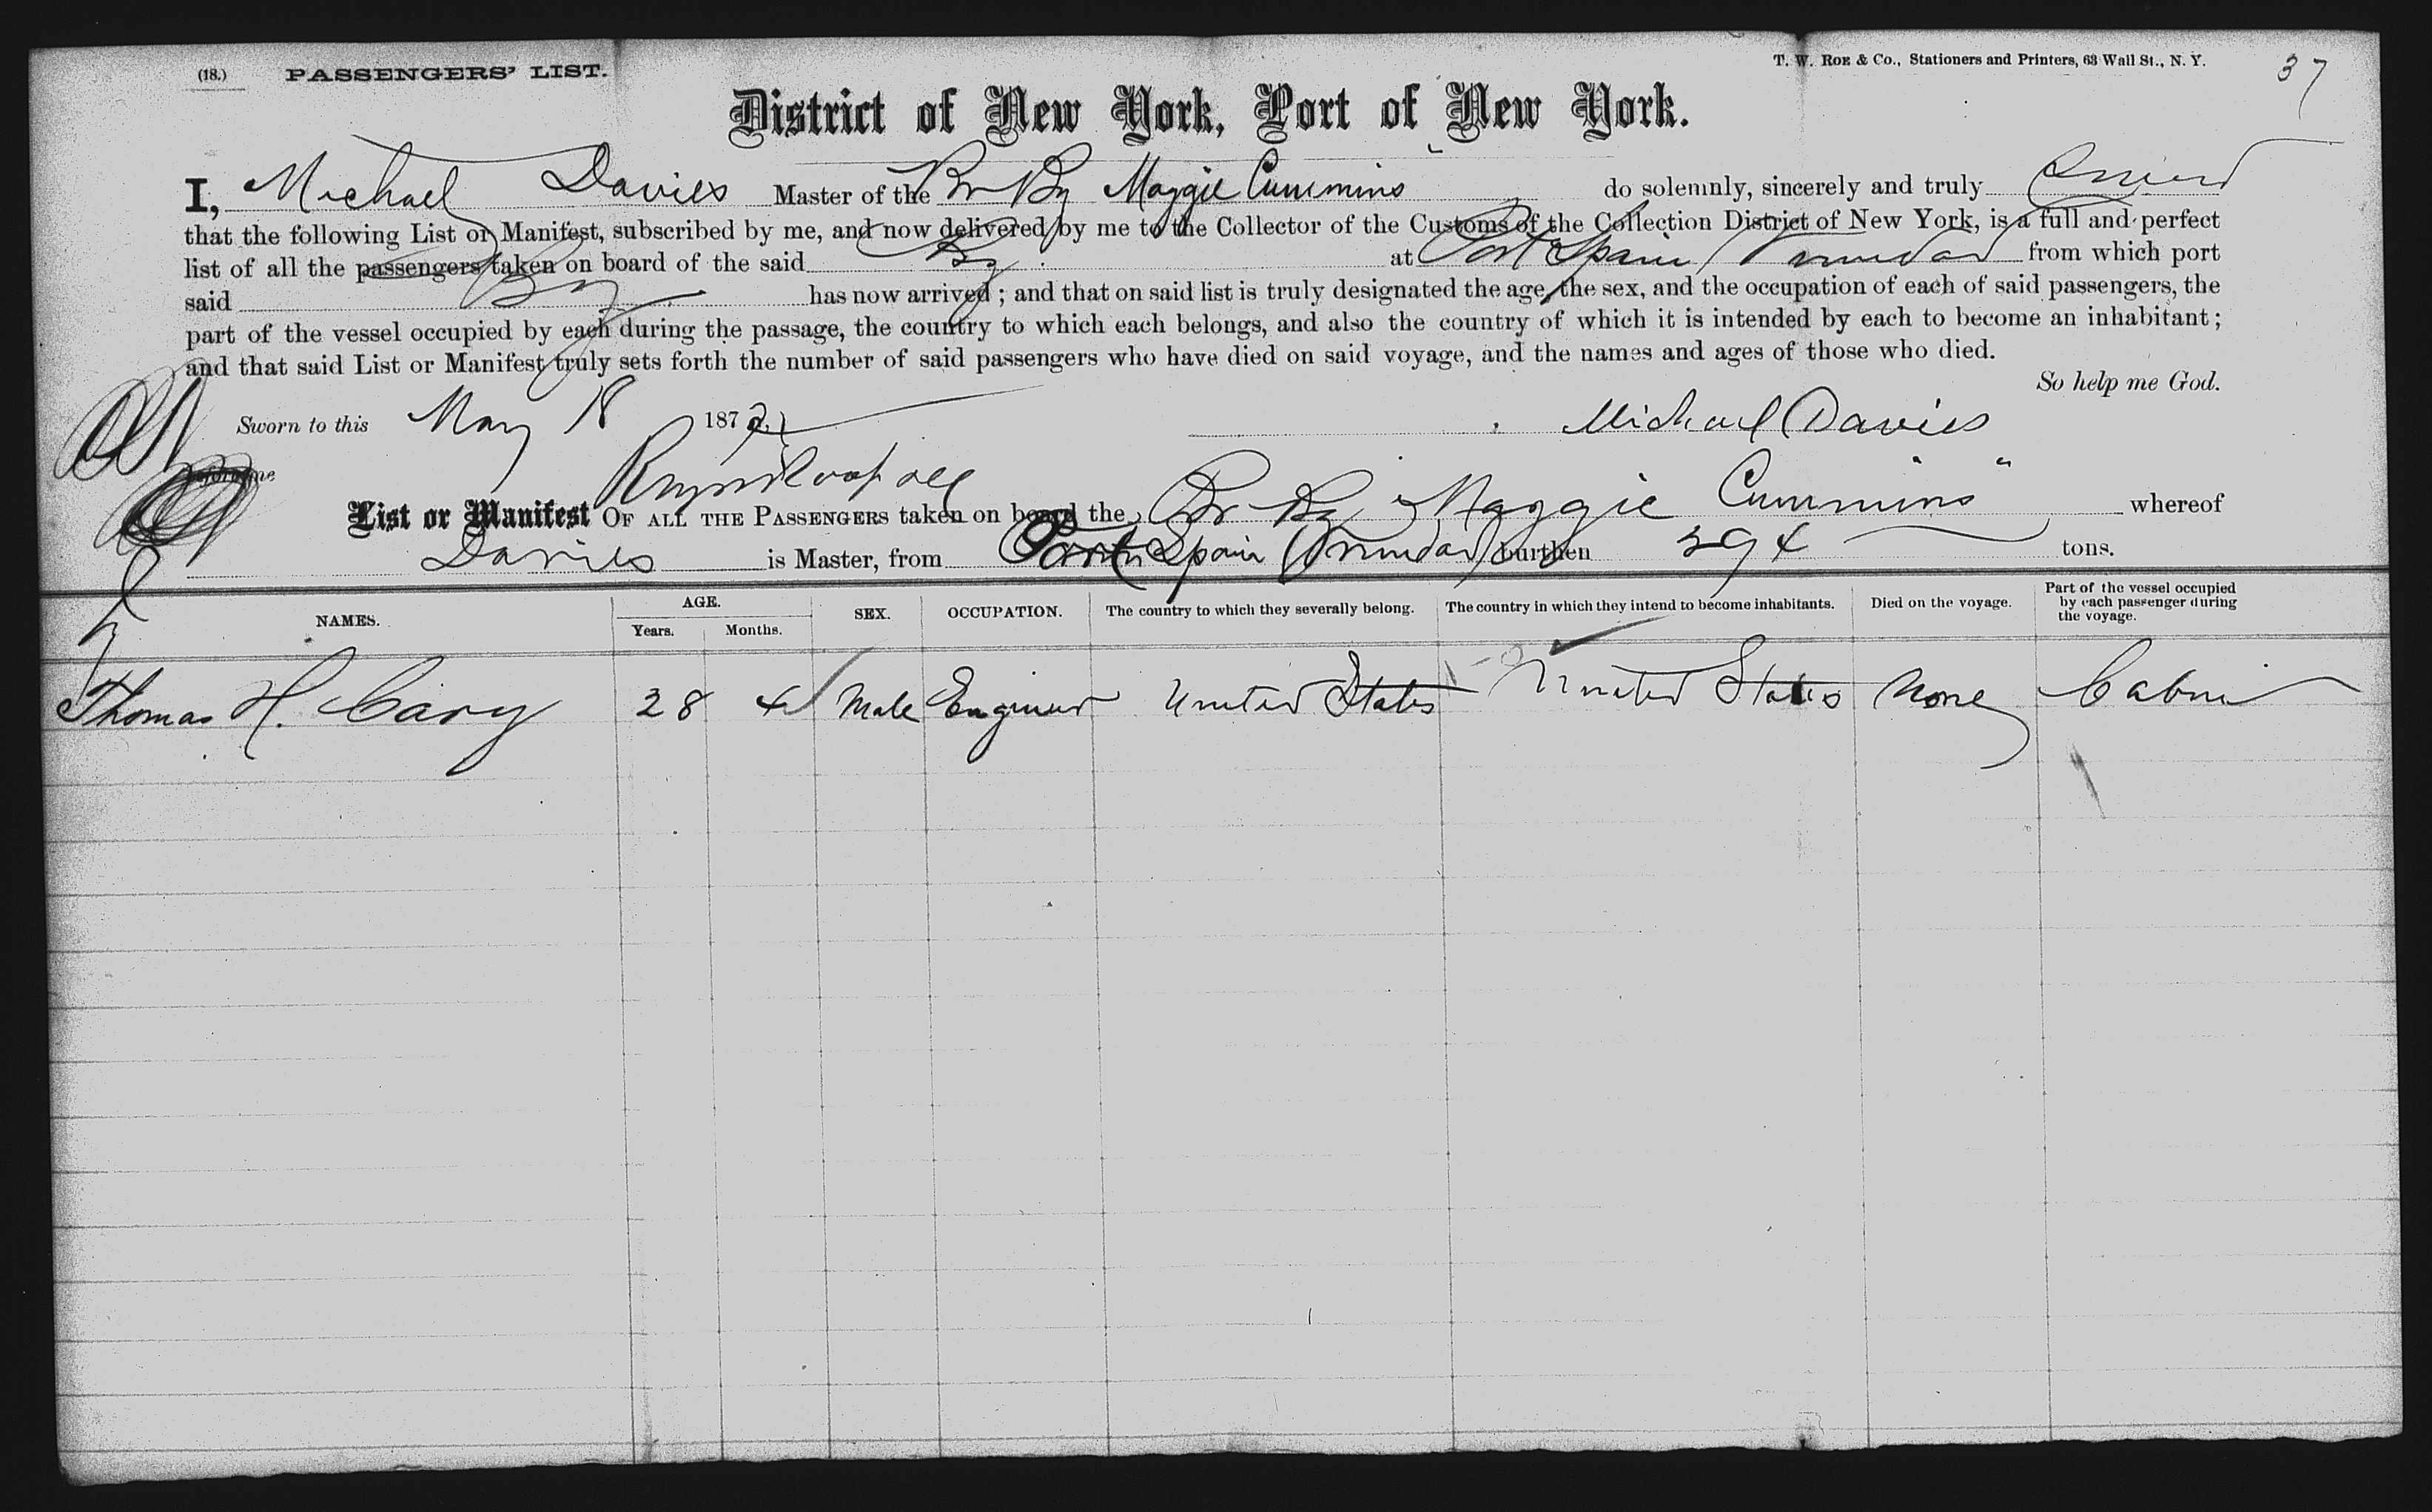 (18.) PASSENGERS' LIST. T. W. ROE & Co., Stationers and Printers, 63 Wall St., N. Y. 37
District of New York, Port of New York.
I, Michael Davies Master of the Br Bg Maggie Cummins do solemnly, sincerely and truly
that the following List or Manifest, subscribed by me, and now delivered by me to the Collector of the Customs of the Collection District of New York, is a full and perfect
list of all the passengers taken on board of the said Bg at Port Spain Trinidad from which port
said Bg has now arrived; and that on said list is truly designated the age, the sex, and the occupation of each of said passengers, the
part of the vessel occupied by each during the passage, the country to which each belongs, and also the country of which it is intended by each to become an inhabitant;
and that said List or Manifest truly sets forth the number of said passengers who have died on said voyage, and the names and ages of those who died.
So help me God.
Sworn to this May 18 1872 Michael Davies
before me
List or Manifest OF ALL THE PASSENGERS taken on board the Br Bg "Maggie Cummins" whereof
Davies is Master, from Port Spain Trinidad burthen 394 tons.
NAMES. AGE. Years. Months. SEX. OCCUPATION. The country to which they severally belong. The country in which they intend to become inhabitants. Died on the voyage. Part of the vessel occupied by each passenger during the voyage.
Thomas H. Cary 28 4 Male Engineer United States United States None Cabin